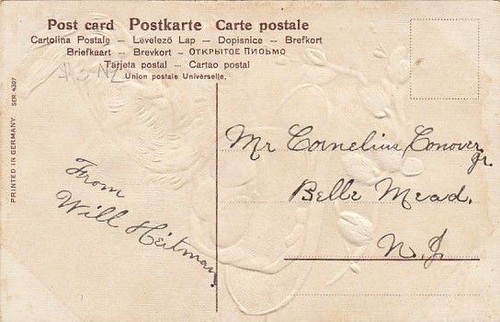 Post card Postkarte Carte postale
Cartolina Postale – Levelező Lap – Dopisnice – Brefkort
Briefkaart – Brevkort – ОТКРЫТОЕ ПИСЬМО
Tarjeta postal – Cartao postal
Union postale Universelle.
PRINTED IN GERMANY. SER. 4207
Mr Cornelius Conover
Jr.
Belle Mead.
N.J.
From
Will Heitman